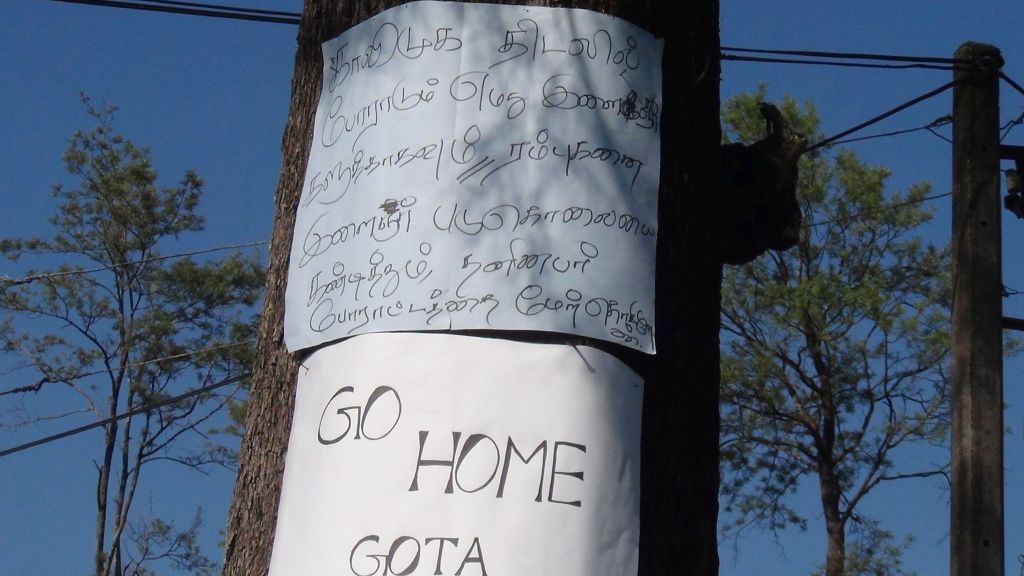 காலிமுக திடலில்
போராடும் எமது இளைஞர்
நலத்திற்காகவும், ரம்புகனை
இளைஞர் படுகொலையை
கண்டித்தும் தனிநபர்
போராட்டத்தை
GO
HOME
GOTA